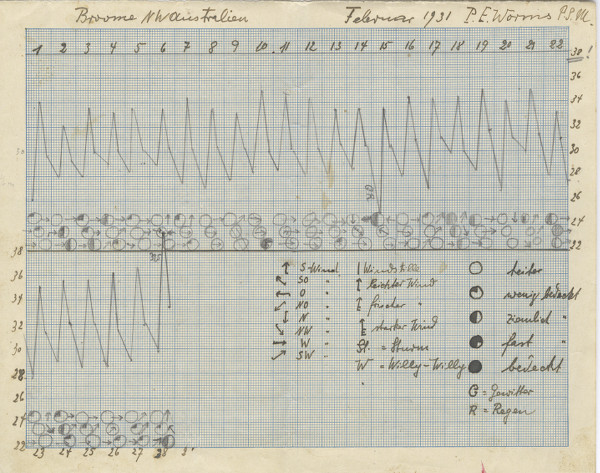 Broome NWaustralien Februar 1931 P.E.Worms P.S.M.
1 2 3 4 5 6 7 8 9 10 11 12 13 14 15 16 17 18 19 20 21 22 38!
36
34
32
30
28
26
GR
24
22
38
36
34
32
30
28
24
22
S-Wind
SO "
O "
NO "
N "
NW "
W "
SW "
Windstille
leichter Wind
frischer "
starker Wind
St. = Sturm
W = Willy-Willy
heiter
wenig bedeckt
ziemlich "
fast "
bedeckt
G = Gewitter
R = Regen
23 24 25 26 27 28